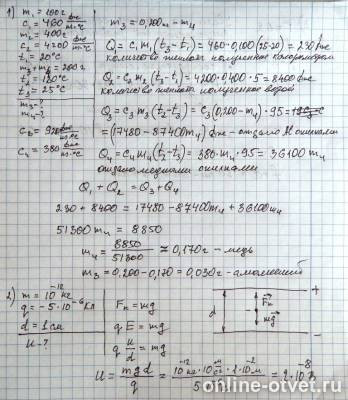 1) m₁ = 100г
c₁ = 460 Дж/кг·°C
m₂ = 400г
c₂ = 4200 Дж/кг·°C
t₁ = 20°C
m₃ + m₄ = 200г
t₂ = 120°C
t₃ = 25°C
m₃ - ?
m₄ - ?
c₃ = 920 Дж/кг·°C
c₄ = 380 Дж/кг·°C
m₃ = 0,200кг - m₄
Q₁ = c₁m₁(t₃-t₁) = 460·0,100(25-20) = 230 Дж
количество теплоты полученное калориметром
Q₂ = c₂m₂(t₃-t₁) = 4200·0,400·5 = 8400 Дж
количество теплоты полученное водой
Q₃ = c₃m₃(t₂-t₃) = c₃(0,200-m₄)·95 =
= (17480 - 87400m₄) Дж - отдано Al опилками
Q₄ = c₄m₄(t₂-t₃) = 380·m₄·95 = 36100m₄
отдано медными опилками
Q₁ + Q₂ = Q₃ + Q₄
230 + 8400 = 17480 - 87400m₄ + 36100m₄
51300m₄ = 8850
m₄ = 8850/51300 ≈ 0,170г - медь
m₃ = 0,200 - 0,170 = 0,030г - алюминий
2) m = 10⁻¹² кг
q = -5·10⁻⁶ Кл
d = 1см
U - ?
Fк = mg
qE = mg
q U/d = mg
U = mgd/q = 10⁻¹²кг·10 м/с²·1·10⁻²м
= 2·10⁻⁸ В
+
d
Fк
mg
-
online-otvet.ru